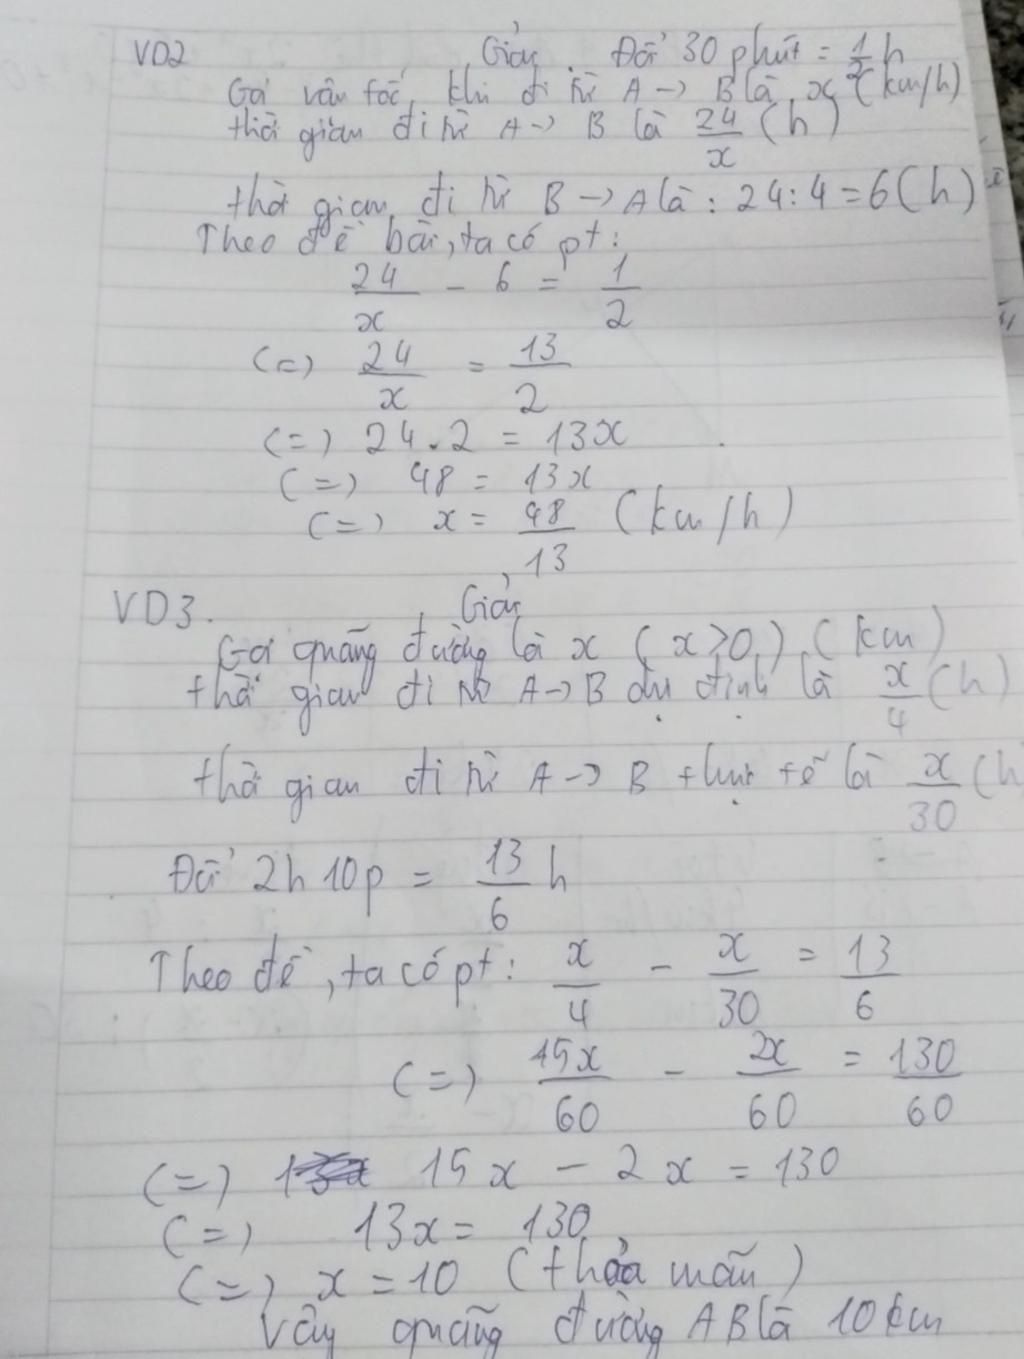 VD2 Giải. Đổi 30 phút = 1/2 h
Gọi vận tốc khi đi từ A -> B là x (km/h)
thời gian đi từ A -> B là 24/x (h)
thời gian đi từ B -> A là : 24 : 4 = 6 (h)
Theo đề bài, ta có pt :
24/x - 6 = 1/2
(=) 24/x = 13/2
(=) 24 . 2 = 13x
(=) 48 = 13x
(=) x = 48/13 (km/h)
VD3. Giải
Gọi quãng đường là x (x > 0) (km)
thời gian đi từ A -> B dự định là x/4 (h)
thời gian đi từ A -> B thực tế là x/30 (h
Đổi 2h 10p = 13/6 h
Theo đề, ta có pt : x/4 - x/30 = 13/6
(=) 15x/60 - 2x/60 = 130/60
(=) 15x - 2x = 130
(=) 13x = 130
(=) x = 10 (thỏa mãn)
Vậy quãng đường AB là 10 km